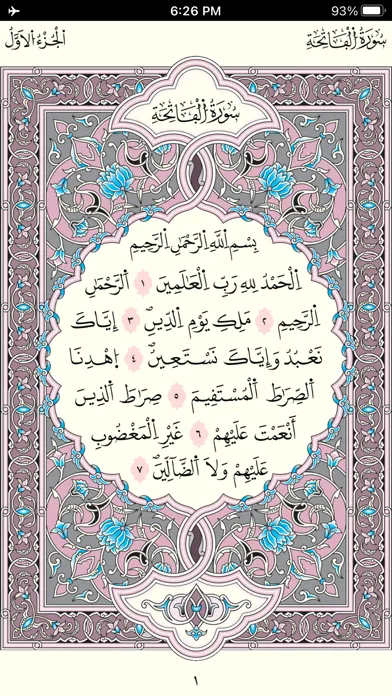 6:26 PM
93%
سُورَةُ اُ۬لْفَاتِحَةِ
اَ۬لْجُزْءُ اُ۬لَاوَّلُ
سُورَةُ اُ۬لْفَاتِحَةِ
بِسْمِ اِ۬للَّهِ اِ۬لرَّحْمَٰنِ اِ۬لرَّحِيمِ
اِ۬لْحَمْدُ لِلهِ رَبِّ اِ۬لْعَٰلَمِينَ ١ اَ۬لرَّحْمَٰنِ
اِ۬لرَّحِيمِ ٢ مَلِكِ يَوْمِ اِ۬لدِّينِۖ ٣ إِيَّاكَ
نَعْبُدُ وَإِيَّاكَ نَسْتَعِينُۖ ٤ اُ۪هْدِنَا
اَ۬لصِّرَٰطَ اَ۬لْمُسْتَقِيمَ ٥ صِرَٰطَ اَ۬لذِينَ
أَنْعَمْتَ عَلَيْهِمْ ٦ غَيْرِ اِ۬لْمَغْضُوبِ
عَلَيْهِمْ وَلَا اَ۬لضَّآلِّينَۖ ٧
١